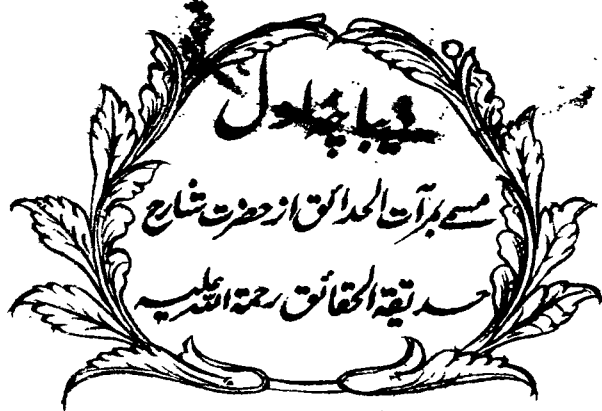 دیباچہ اول
مسمے بمرآت الحدائق از حضرت شارح
حدیقۃ الحقائق رحمۃ اللہ علیہ